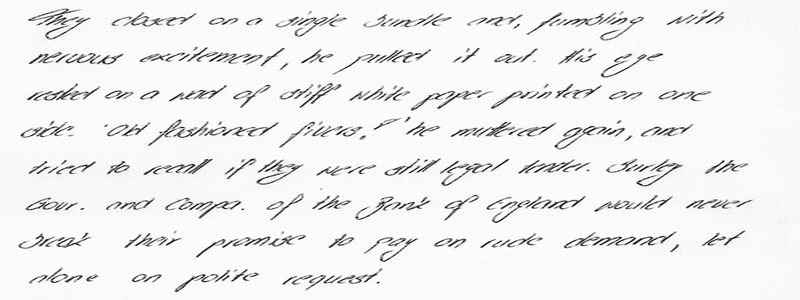 They closed on a single bundle and, fumbling with
nervous excitement, he pulled it out. His eye
rested on a wad of stiff white paper printed on one
side. 'Old fashioned fivers,?' he muttered again, and
tried to recall if they were still legal tender. Surely the
Gour. and Compa. of the Bank of England would never
break their promise to pay on rude demand, let
alone on polite request.